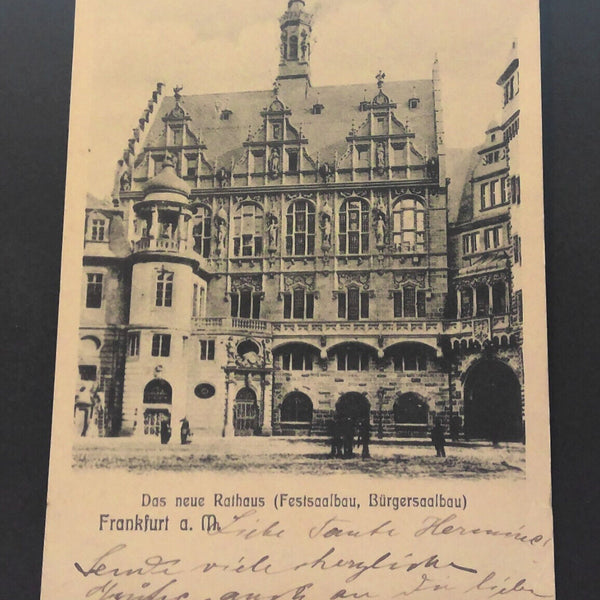 Das neue Rathaus (Festsaalbau, Bürgersaalbau)
Frankfurt a. M. Liebe Tante Hermine!
Sende viele herzliche
auch an die lieben